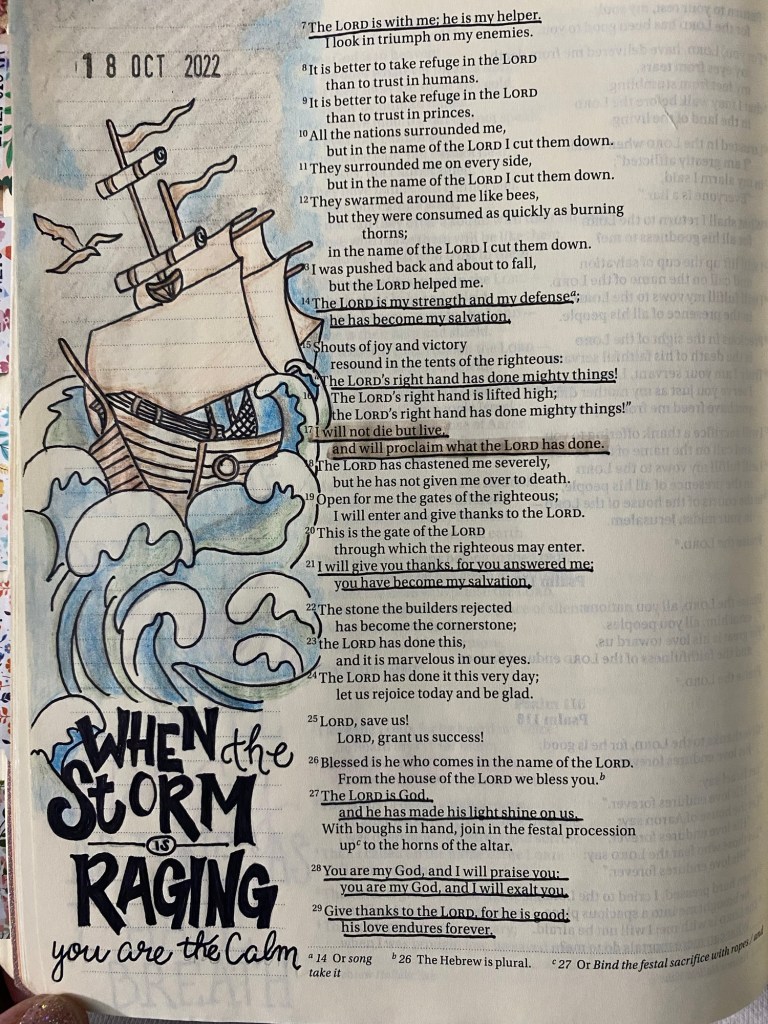 18 OCT 2022
7 The LORD is with me; he is my helper.
I look in triumph on my enemies.
8 It is better to take refuge in the LORD
than to trust in humans.
9 It is better to take refuge in the LORD
than to trust in princes.
10 All the nations surrounded me,
but in the name of the LORD I cut them down.
11 They surrounded me on every side,
but in the name of the LORD I cut them down.
12 They swarmed around me like bees,
but they were consumed as quickly as burning
thorns;
in the name of the LORD I cut them down.
13 I was pushed back and about to fall,
but the LORD helped me.
14 The LORD is my strength and my defense a;
he has become my salvation.
15 Shouts of joy and victory
resound in the tents of the righteous:
"The LORD's right hand has done mighty things!
16 The LORD's right hand is lifted high;
the LORD's right hand has done mighty things!"
17 I will not die but live,
and will proclaim what the LORD has done.
18 The LORD has chastened me severely,
but he has not given me over to death.
19 Open for me the gates of the righteous;
I will enter and give thanks to the LORD.
20 This is the gate of the LORD
through which the righteous may enter.
21 I will give you thanks, for you answered me;
you have become my salvation.
22 The stone the builders rejected
has become the cornerstone;
23 the LORD has done this,
and it is marvelous in our eyes.
24 The LORD has done it this very day;
let us rejoice today and be glad.
25 LORD, save us!
LORD, grant us success!
26 Blessed is he who comes in the name of the LORD.
From the house of the LORD we bless you. b
27 The LORD is God,
and he has made his light shine on us.
With boughs in hand, join in the festal procession
up c to the horns of the altar.
28 You are my God, and I will praise you;
you are my God, and I will exalt you.
29 Give thanks to the LORD, for he is good;
his love endures forever.
a 14 Or song b 26 The Hebrew is plural. c 27 Or Bind the festal sacrifice with ropes / and
take it
WHEN the
STORM
IS
RAGING
you are the Calm